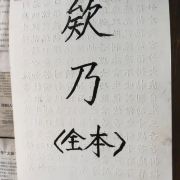 欸
乃
〈全本〉